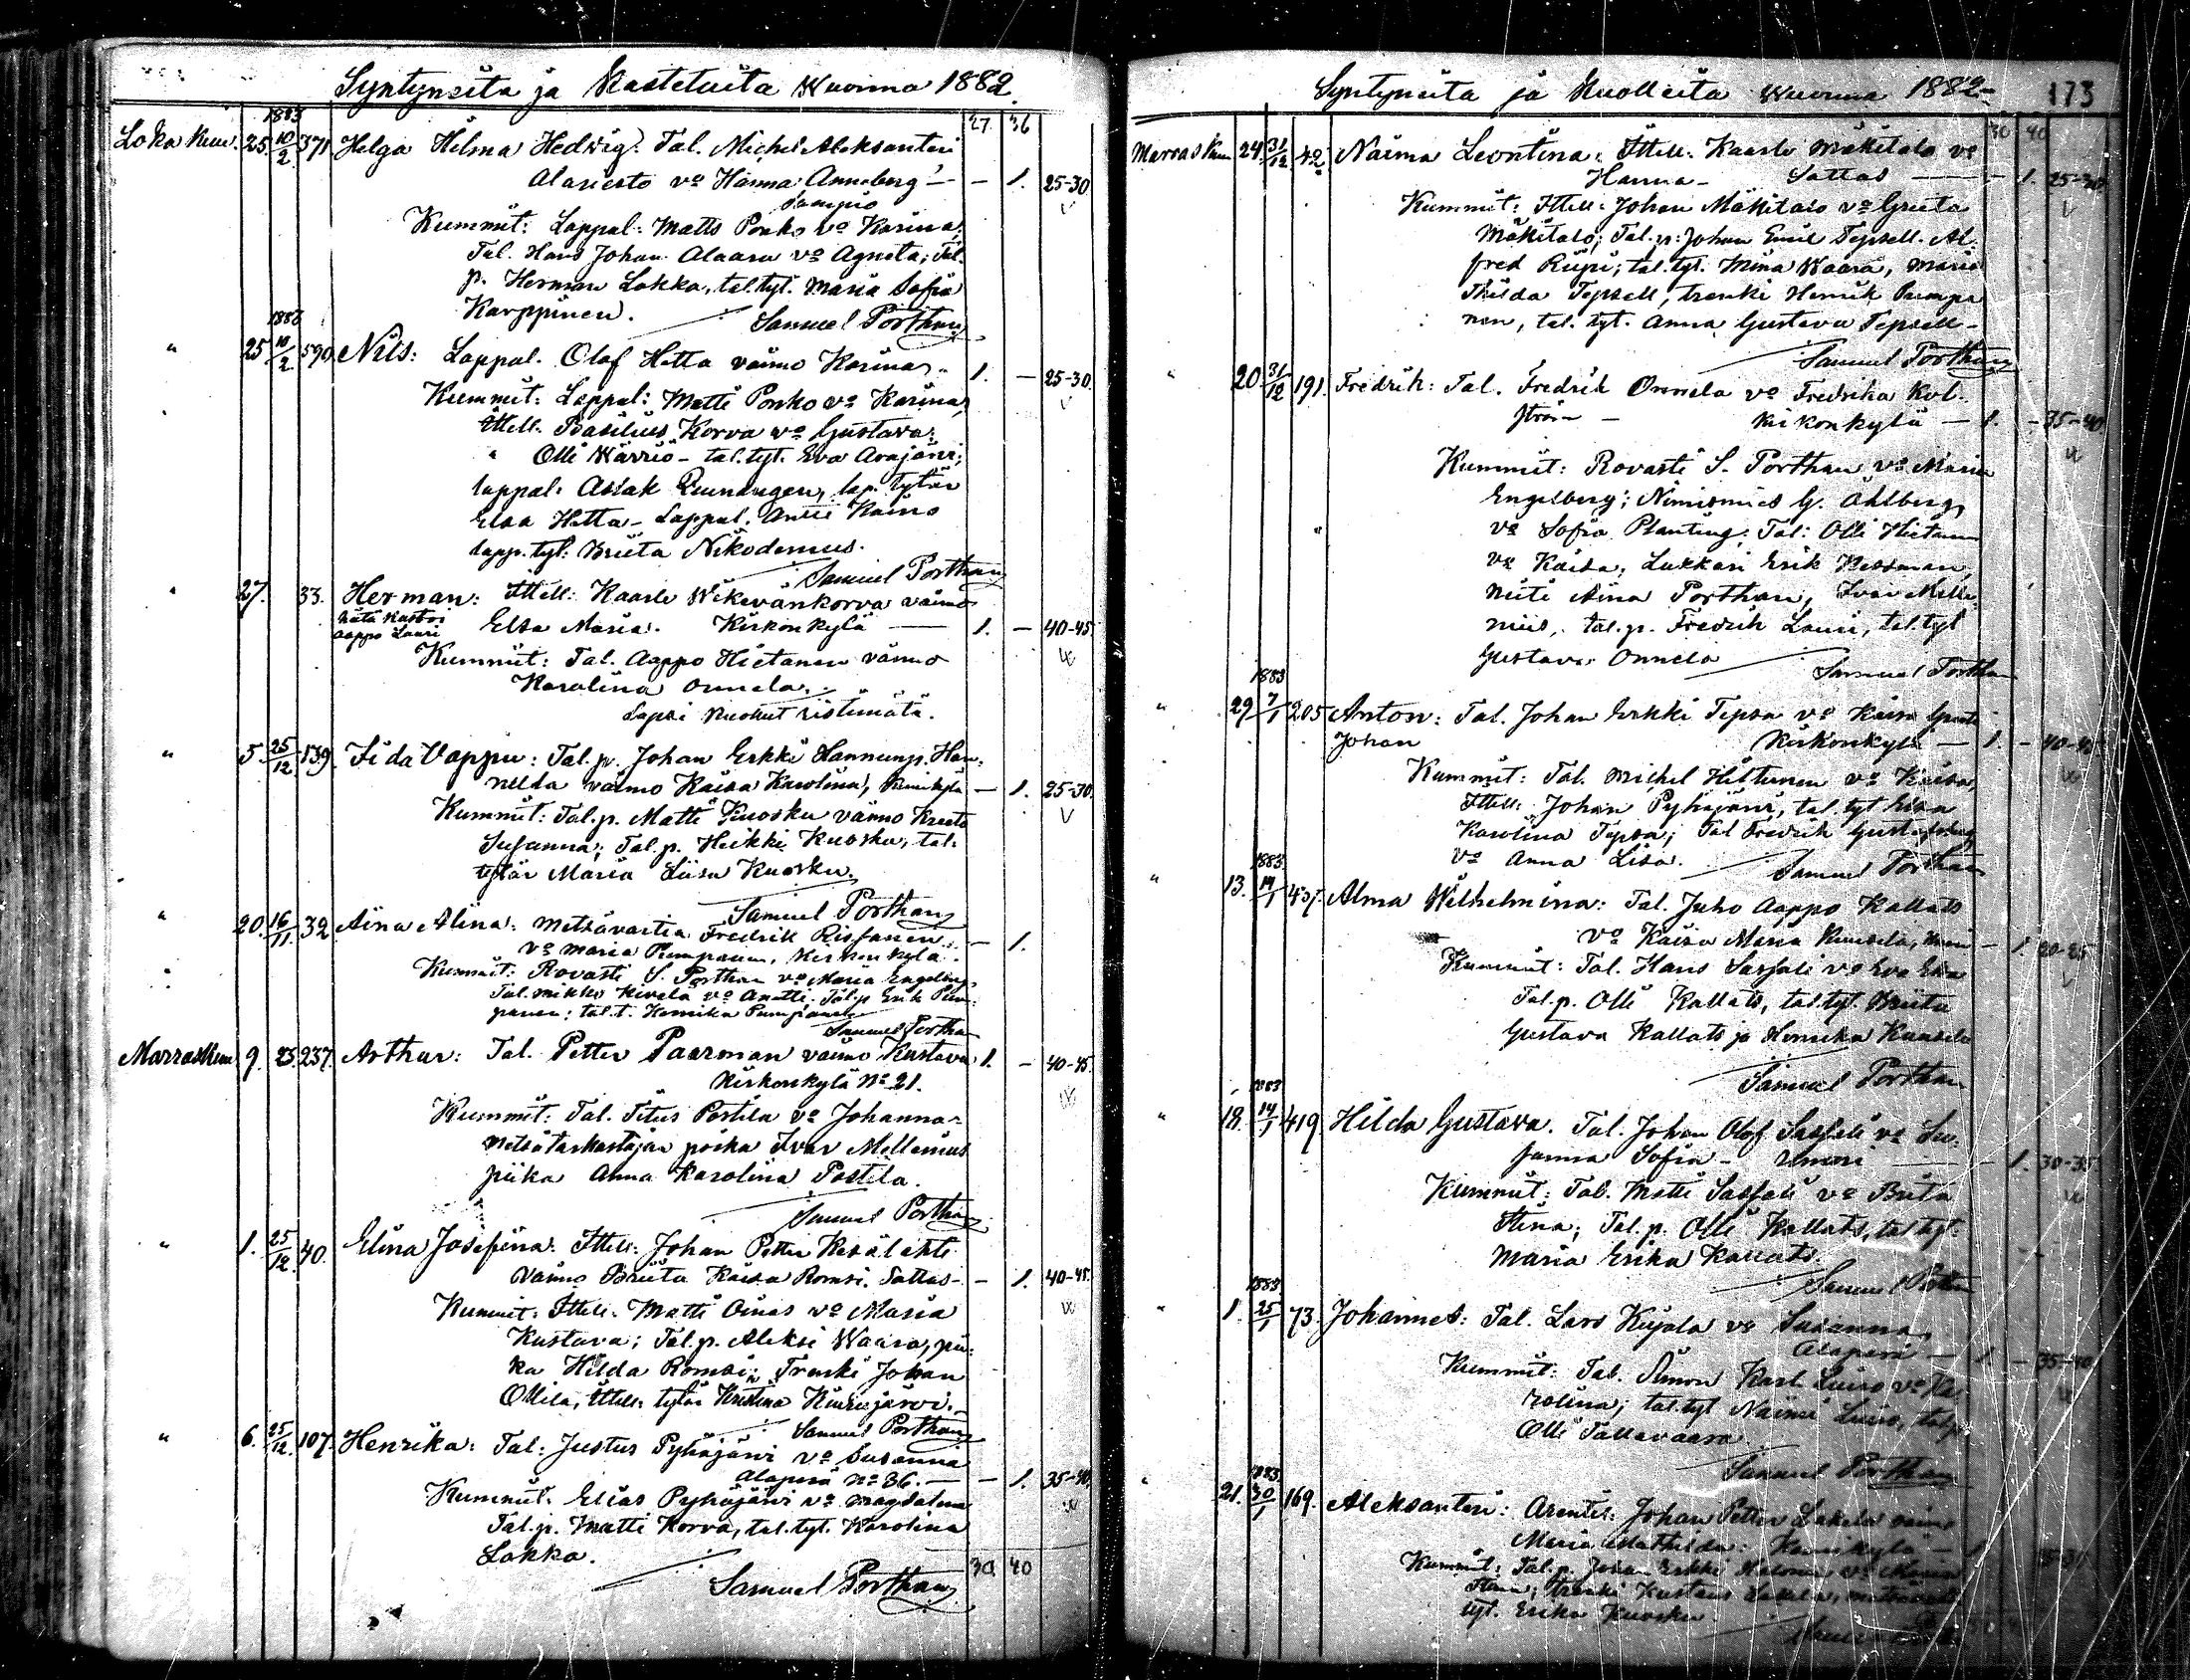 Syntyneitä ja Kastetuita Wuonna 1882.
27. 36
1883
Loka kuu. 25. 10/2 371 Helga Hilma Hedvig. Tal. Michel Aleksanteri
Alariesto vo Hanna Anneberg — — 1. 25-30
Sompio
Kummit: Lappal: Matts Ponko vo Karina;
Tal. Hans Johan Alaara vo Agneta; Tal.
p. Herman Lokka, tal.tyt. Maria Sofia
Karppinen.
Samuel Porthan
1883
" 25 10/2 590 Nils: Lappal. Olof Hetta vaimo Karina 1. — 25-30.
Kummit: Lappal: Matti Ponko vo Karina,
Ittell. Basilius Korva vo Gustava:
" Olli Wärriö - tal.tyt. Eva Arajärvi;
lappal: Aslak lap. tytär
Elsa Hetta - Lappal. Antti
lapp. tyt: Briita Nikodemus.
Samuel Porthan
" 27. 33. Herman: Ittell: Kaarle Wikevänkorva vaimo
hätä kastoi
Aappo Lauri Elsa Maria. Kirkonkylä — 1. — 40-45.
Kummit: Tal. Aappo Hietanen vaimo
Karolina Onnela.
Lapsi kuollut ristimätä.
" 5. 25/12 139. Fida Vappu: Tal. p. Johan Erkki Hannunp. Han-
nulda vaimo Kaisa Karolina, — 1. 25-30.
Kummit: Tal. p. Matti Kuosku vaimo Kreeta
Susanna; Tal. p. Heikki Kuosku, tal.
tytär Maria Liisa Kuosku.
Samuel Porthan
" 20. 16/11. 32 Aina Alina: Metsävartia Fredrik Rissanen
vo Maria Pumpanen, Kirkonkylä. — 1.
Kummit: Rovasti S. Porthan vo Maria Engelberg,
Tal. Mikko Kivela vo Anetti. Tal. p. Erik Pum-
panen; tal. t. Henrika Pumpanen
Samuel Porthan
Marraskuu 9. 25. 237. Arthur: Tal. Petter Paarman vaimo Kustava 1. — 40-45.
Kirkonkylä No 21.
Kummit: Tal. Titus Postila vo Johanna
Metsätarkastajan poika Ivar Mellenius
piika Anna Karolina Postila.
Samuel Porthan
" 1. 25/12. 40. Elina Josefina. Ittell: Johan Petter Kesälahti
vaimo Briita Kaisa Romsi. Sattas — — 1. 40-45.
Kummit: Ittell. Matti Oinas vo Maria
Kustava; Tal. p. Aleksi Waara, pii-
ka Hilda Romsi; Trenki Johan
Ollila, Ittell: tytär Kristina
Samuel Porthan
" 6. 25/12. 107. Henrika: Tal: Justus Pyhäjärvi vo Susanna
Alaperä No 36. — — 1. 35-40.
Kummit: Elias Pyhäjärvi vo Magdalena
Tal. p. Matti Korva, tal. tyt. Karolina
Lokka.
30. 40
Samuel Porthan
Syntyneitä ja Kuolleita Wuonna 1882 — 173
30 40
Marraskuu 24. 31/12. 42 Naima Leontina: Ittell: Kaarle Mäkitalo vo
Hanna — Sattas — — 1. 25-30
Kummit: Ittell: Johan Mäkitalo vo Greeta
Mäkitalo; Tal. p: Johan Emil Tepsell. Al-
fred Riipi; tal. tyt. Miina Waara, Maria
Thilda Tepsell, trenki Henrik Pumpa
nen, tal. tyt. Anna Gustava Tepsell —
Samuel Porthan
" 20 31/12 191. Fredrik: Tal. Fredrik Onnela vo Fredrika Kol-
ström — Kirkonkylä — 1. — 35-40
Kummit: Rovasti S. Porthan vo Maria
Engelberg; Nimismies G. Åhlberg,
vo Sofia Planting; Tal: Olli Hietanen
vo Kaisa, Lukkari Erik Nessman,
neiti Aina Porthan, Ivar Melle-
nius, tal. p. Fredrik Lauri, tal. tyt
Gustava Onnela
Samuel Porthan
1883
" 29 7/1 205 Anton: Tal. Johan Erkki Tepsa vo Kaisa Greeta
Johan Kirkonkylä — 1. — 40-45.
Kummit: Tal. Michel Hiltunen vo Kaisa,
Ittell: Johan Pyhäjärvi, tal. tyt. Elsa
Karolina Tepsa; Tal Fredrik
vo Anna Lisa.
Samuel Porthan
1883
" 13. 14/1 437. Alma Wilhelmina: Tal. Juho Aappo Kallats
vo Kaisa Maria — 1. 20-25
Kummit: Tal. Hans Sassali vo Eva Elsa
Tal. p. Olli Kallats, tal. tyt. Briita
Gustava Kallats ja Henrika Kuusela
Samuel Porthan
1883
" 18. 14/1 419. Hilda Gustava. Tal. Johan Olof Sassali vo Su-
sanna Sofia — Unari — — 1. 30-35
Kummit: Tal. Matti Sassali vo Brita
Stina; Tal. p. Olli Kallats, tal. tyt.
Maria Erika Kallats.
Samuel Porthan
1883
" 1. 25/1 73. Johannes: Tal. Lars Kujala vo Susanna,
Alaperä — 1. — 35-40
Kummit: Tal. Simon Karl Luiro vo Ka-
rolina; tal. tyt Naimi Luiro, tal. p
Olli Tallavaara
Samuel Porthan
1883
" 21. 30/1 169. Aleksanteri: Arentil: Johan Petter Lakela vaimo
Maria Mathilda: —
Kummit: Tal. p. Johan Erkki vo Maria
Stina; trenki Kustaus
tyt. Erika Kuosku.